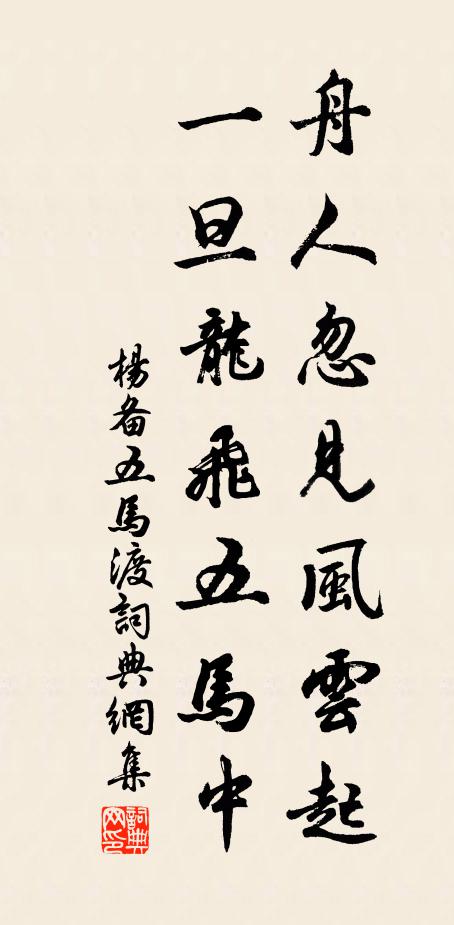 舟人忽見風雲起
一旦龍飛五馬中
楊备五馬渡詞典網集
詞典网印